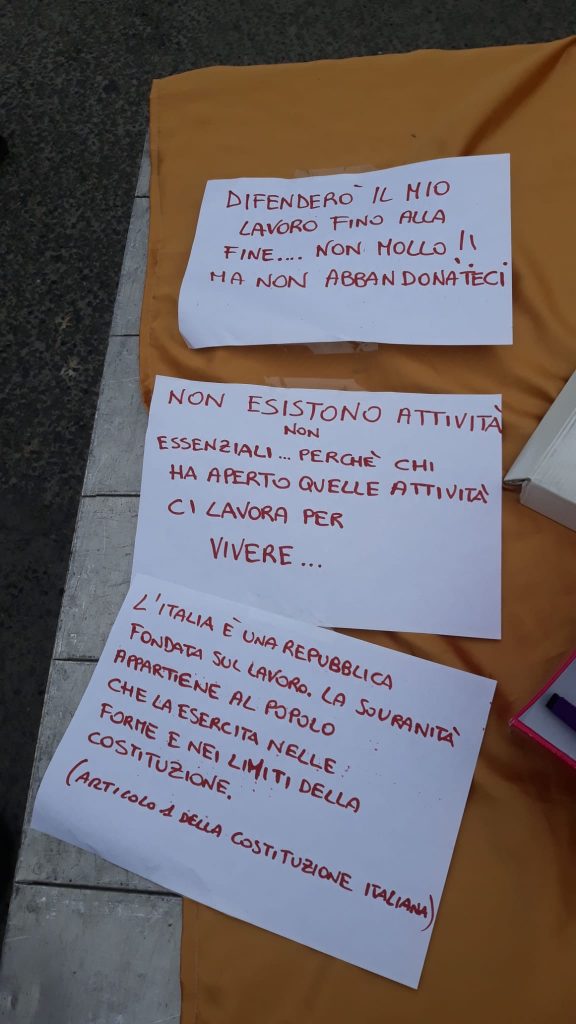 DIFENDERÒ IL MIO
LAVORO FINO ALLA
FINE.... NON MOLLO!!
MA NON ABBANDONATECI
NON ESISTONO ATTIVITÀ
NON
ESSENZIALI... PERCHÈ CHI
HA APERTO QUELLE ATTIVITÀ
CI LAVORA PER
VIVERE...
L'ITALIA È UNA REPUBBLICA
FONDATA SUL LAVORO. LA SOVRANITÀ
APPARTIENE AL POPOLO
CHE LA ESERCITA NELLE
FORME E NEI LIMITI DELLA
COSTITUZIONE.
(ARTICOLO 1 DELLA COSTITUZIONE ITALIANA)